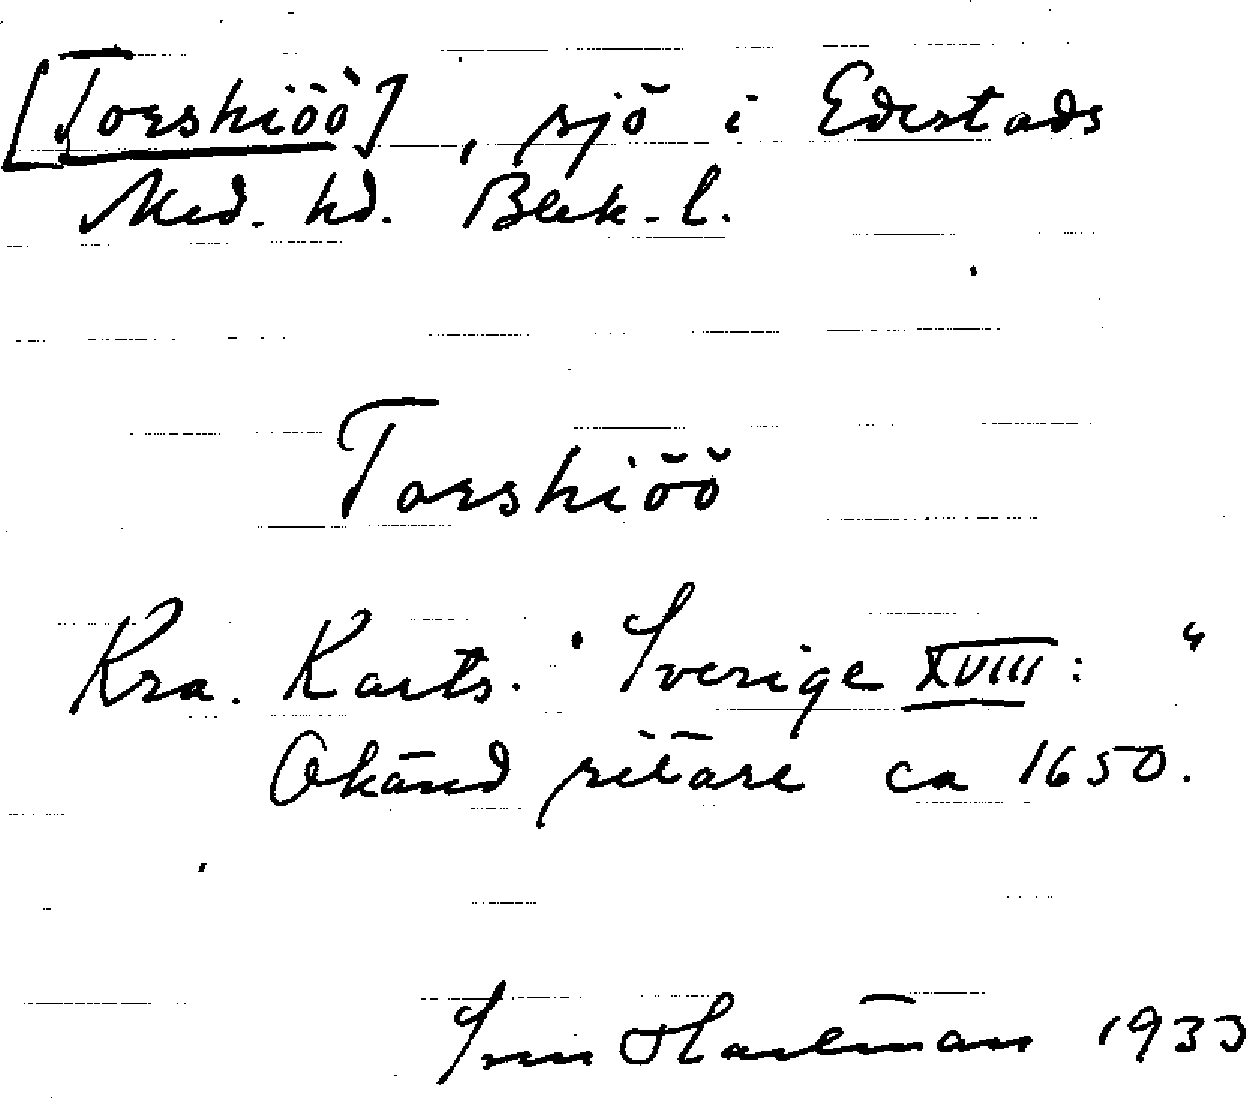 [Torskiöö], sjö i Edestads
Med. hd. Blek. l.
Torskiöö
Kra. Karts. "Sverige XVIII: "
Okänd ritare ca 1650.
Hartman 1933